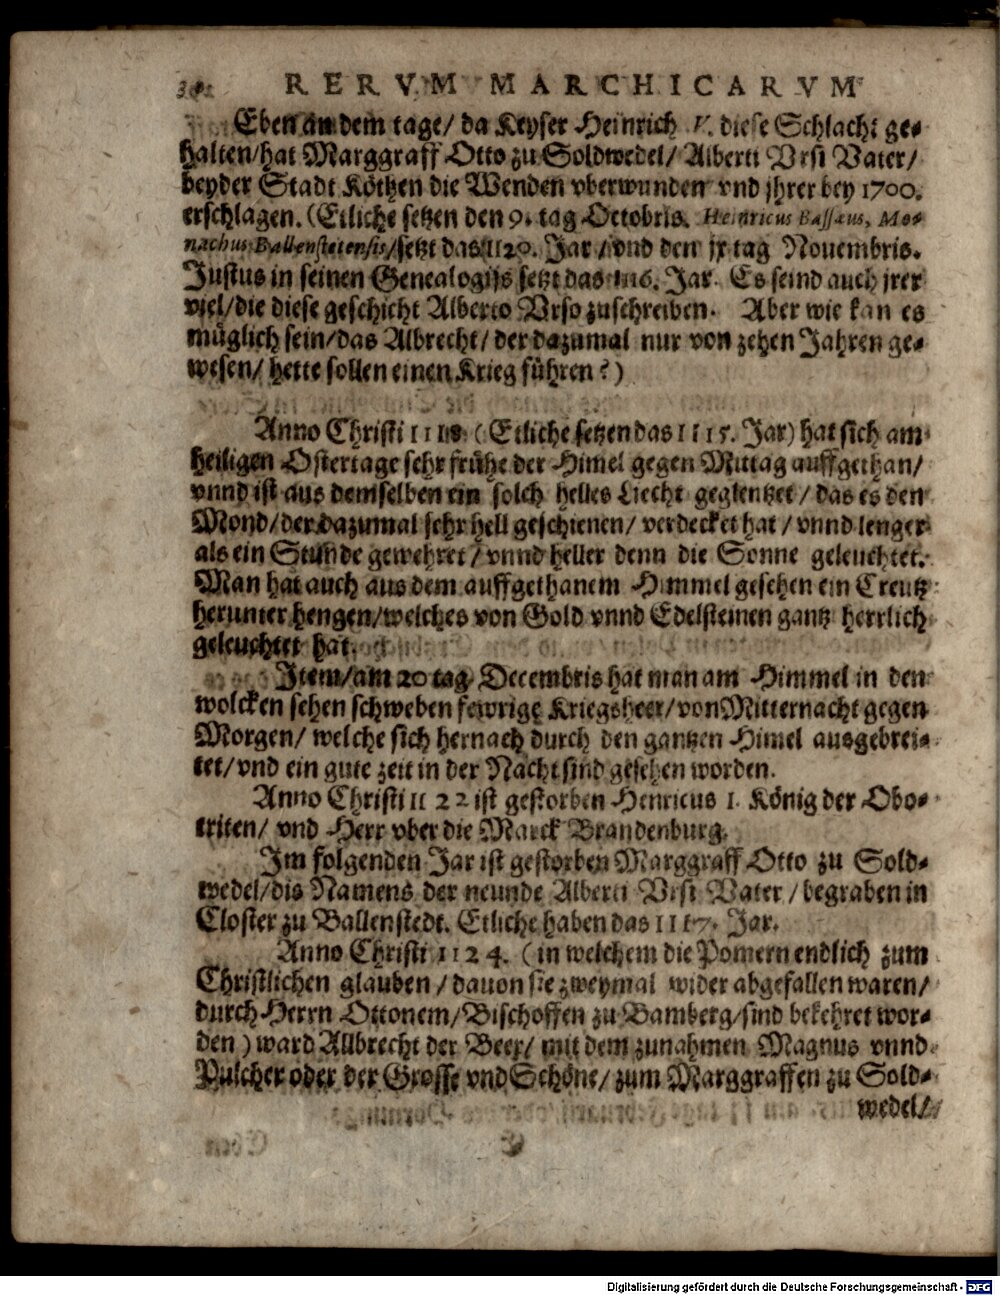 RERVM MARCHICARVM
Eben an dem tage/ da Keyser Heinrich V. diese Schlacht ge-
halten/hat Marggraff Otto zu Soldwedel/ Alberti Vrsi Vater/
bey der Stadt Köthen die Wenden vberwunden vnd jhrer bey 1700.
erschlagen. (Etliche setzen den 9. tag Octobris. Heinricus Bassæus, Mo-
nachus Ballenstetensis/setzt das 1120. Jar / vnd den jx tag Nouembris.
Justus in seinen Genealogijs setzt das 1116. Jar. Es seind auch jrer
viel/die diese geschicht Alberto Vrso zuschreiben. Aber wie kan es
müglich sein/das Albrecht/ der dazumal nur von zehen Jahren ge-
wesen/ hette sollen einen Krieg führen?)
Anno Christi 1118. (Etliche setzen das 1115. Jar) hat sich am
heiligen Ostertage sehr frühe der Himel gegen Mittag auffgethan/
vnnd ist aus demselben ein solch helles Liecht geglentzet / das es den
Mond/der dazumal sehr hell geschienen/ verdecket hat / vnnd lenger
als ein Stunde gewehret / vnnd heller denn die Sonne geleuchtet.
Man hat auch aus dem auffgethanem Himmel gesehen ein Creutz
herunter hengen/welches von Gold vnnd Edelsteinen gantz herrlich
geleuchtet hat.
Item/am 20 tag Decembris hat man am Himmel in den
wolcken sehen schweben fewrige Kriegsheer/von Mitternacht gegen
Morgen/ welche sich hernach durch den gantzen Himel ausgebrei-
tet/vnd ein gute zeit in der Nacht sind gesehen worden.
Anno Christi 1122 ist gestorben Henricus 1. König der Obo-
triten/ vnd Herr vber die Marck Brandenburg.
Im folgenden Jar ist gestorben Marggraff Otto zu Sold-
wedel/dis Namens der neunde Alberti Vrsi Vater / begraben in
Closter zu Ballenstedt. Etliche haben das 1117. Jar.
Anno Christi 1124. (in welchem die Pomern endlich zum
Christlichen glauben / dauon sie zweymal wider abgefallen waren/
durch Herrn Ottonem/ Bischoffen zu Bamberg/sind bekehret wor-
den) ward Allbrecht der Beer/ mit dem zunahmen Magnus vnnd
Pulcher oder der Grosse vnd Schöne/ zum Marggraffen zu Sold-
wedel/
Digitalisierung gefördert durch die Deutsche Forschungsgemeinschaft - DFG